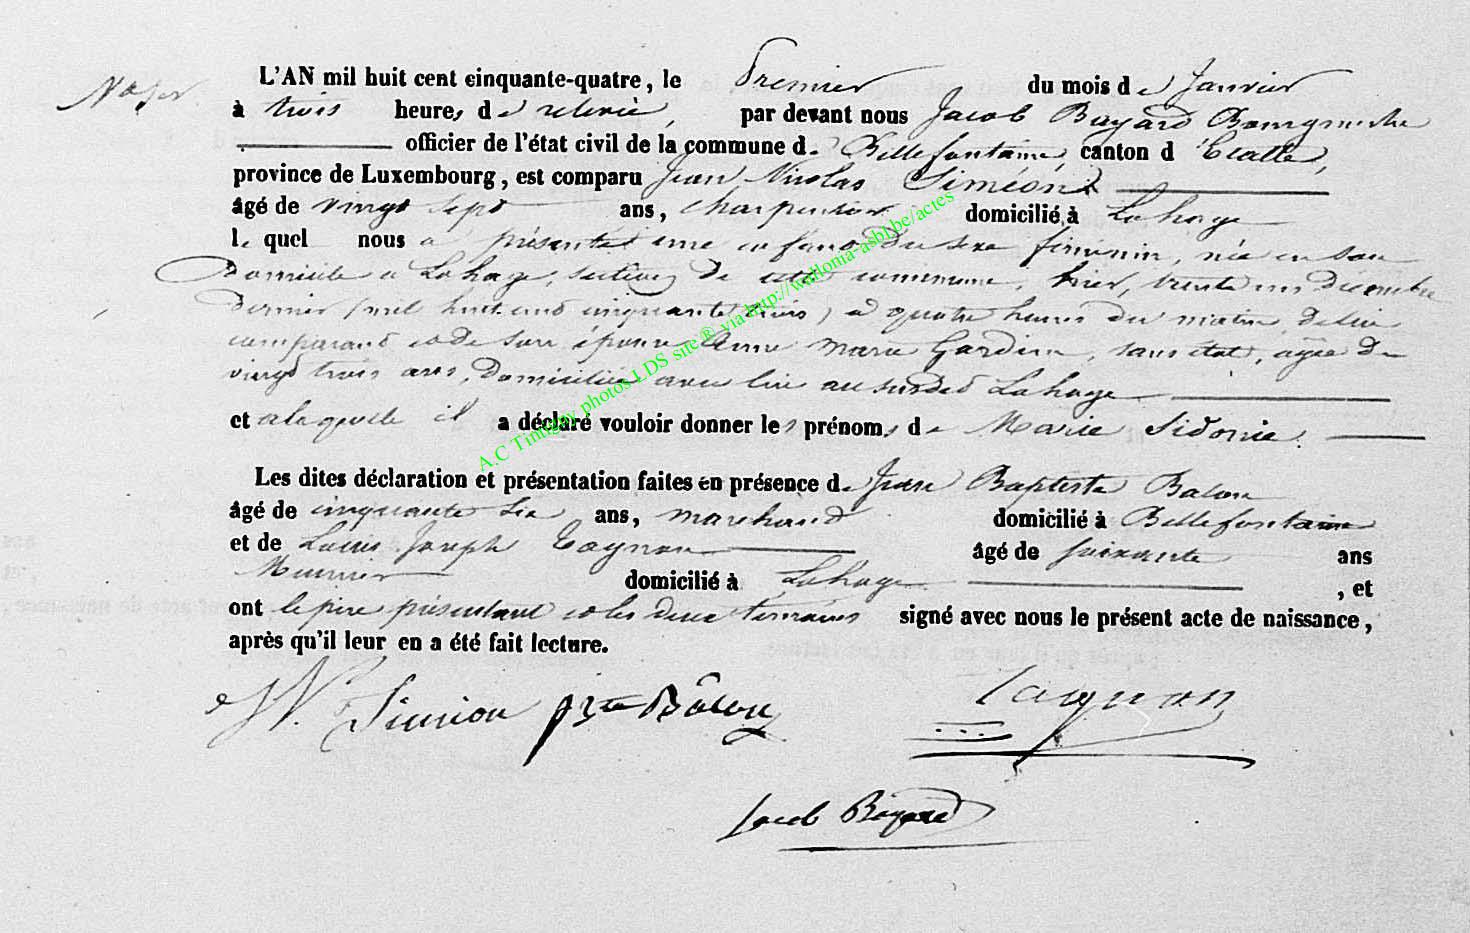 L'AN mil huit cent cinquante-quatre, le Premier du mois de Janvier
à trois heures de relevée, par devant nous Jacob Bayard Bourgmestre
officier de l'état civil de la commune de Bellefontaine canton d'Etalle,
province de Luxembourg, est comparu Jean Nicolas Siméon
âgé de vingt sept ans, charpentier domicilié à Lahage
lequel nous a présenté une enfant du sexe féminin, née en son
domicile à Lahage, section de cette commune, hier, trente un décembre
dernier (mil huit cent cinquante trois) à quatre heures du matin, de lui
comparant et de son épouse Anne Marie Gardin, sans état, âgée de
vingt trois ans, domiciliée avec lui au susdit Lahage
et à laquelle il a déclaré vouloir donner les prénoms de Marie Sidonie.
Les dites déclaration et présentation faites en présence de Jean Baptiste Balon
âgé de cinquante six ans, marchand domicilié à Bellefontaine
et de Louis Joseph Tagnon âgé de soixante ans
Meunier domicilié à Lahage, et
ont le père présentant et les deux témoins signé avec nous le présent acte de naissance,
après qu'il leur en a été fait lecture.
JN. Siméon Bte Bâlon Tagnon
Jacob Bayard
A.C Tintigny photos LDS site ® via http://wallonia-asbl.be/actes